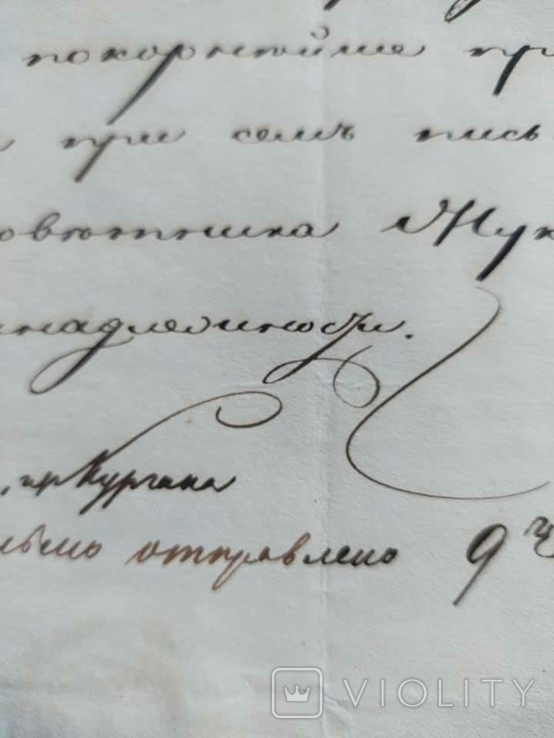 покорнѣйше пр
при семъ пись
овѣтника Жук
надлежности.
Кургана
отправлено 9
VIOLITY